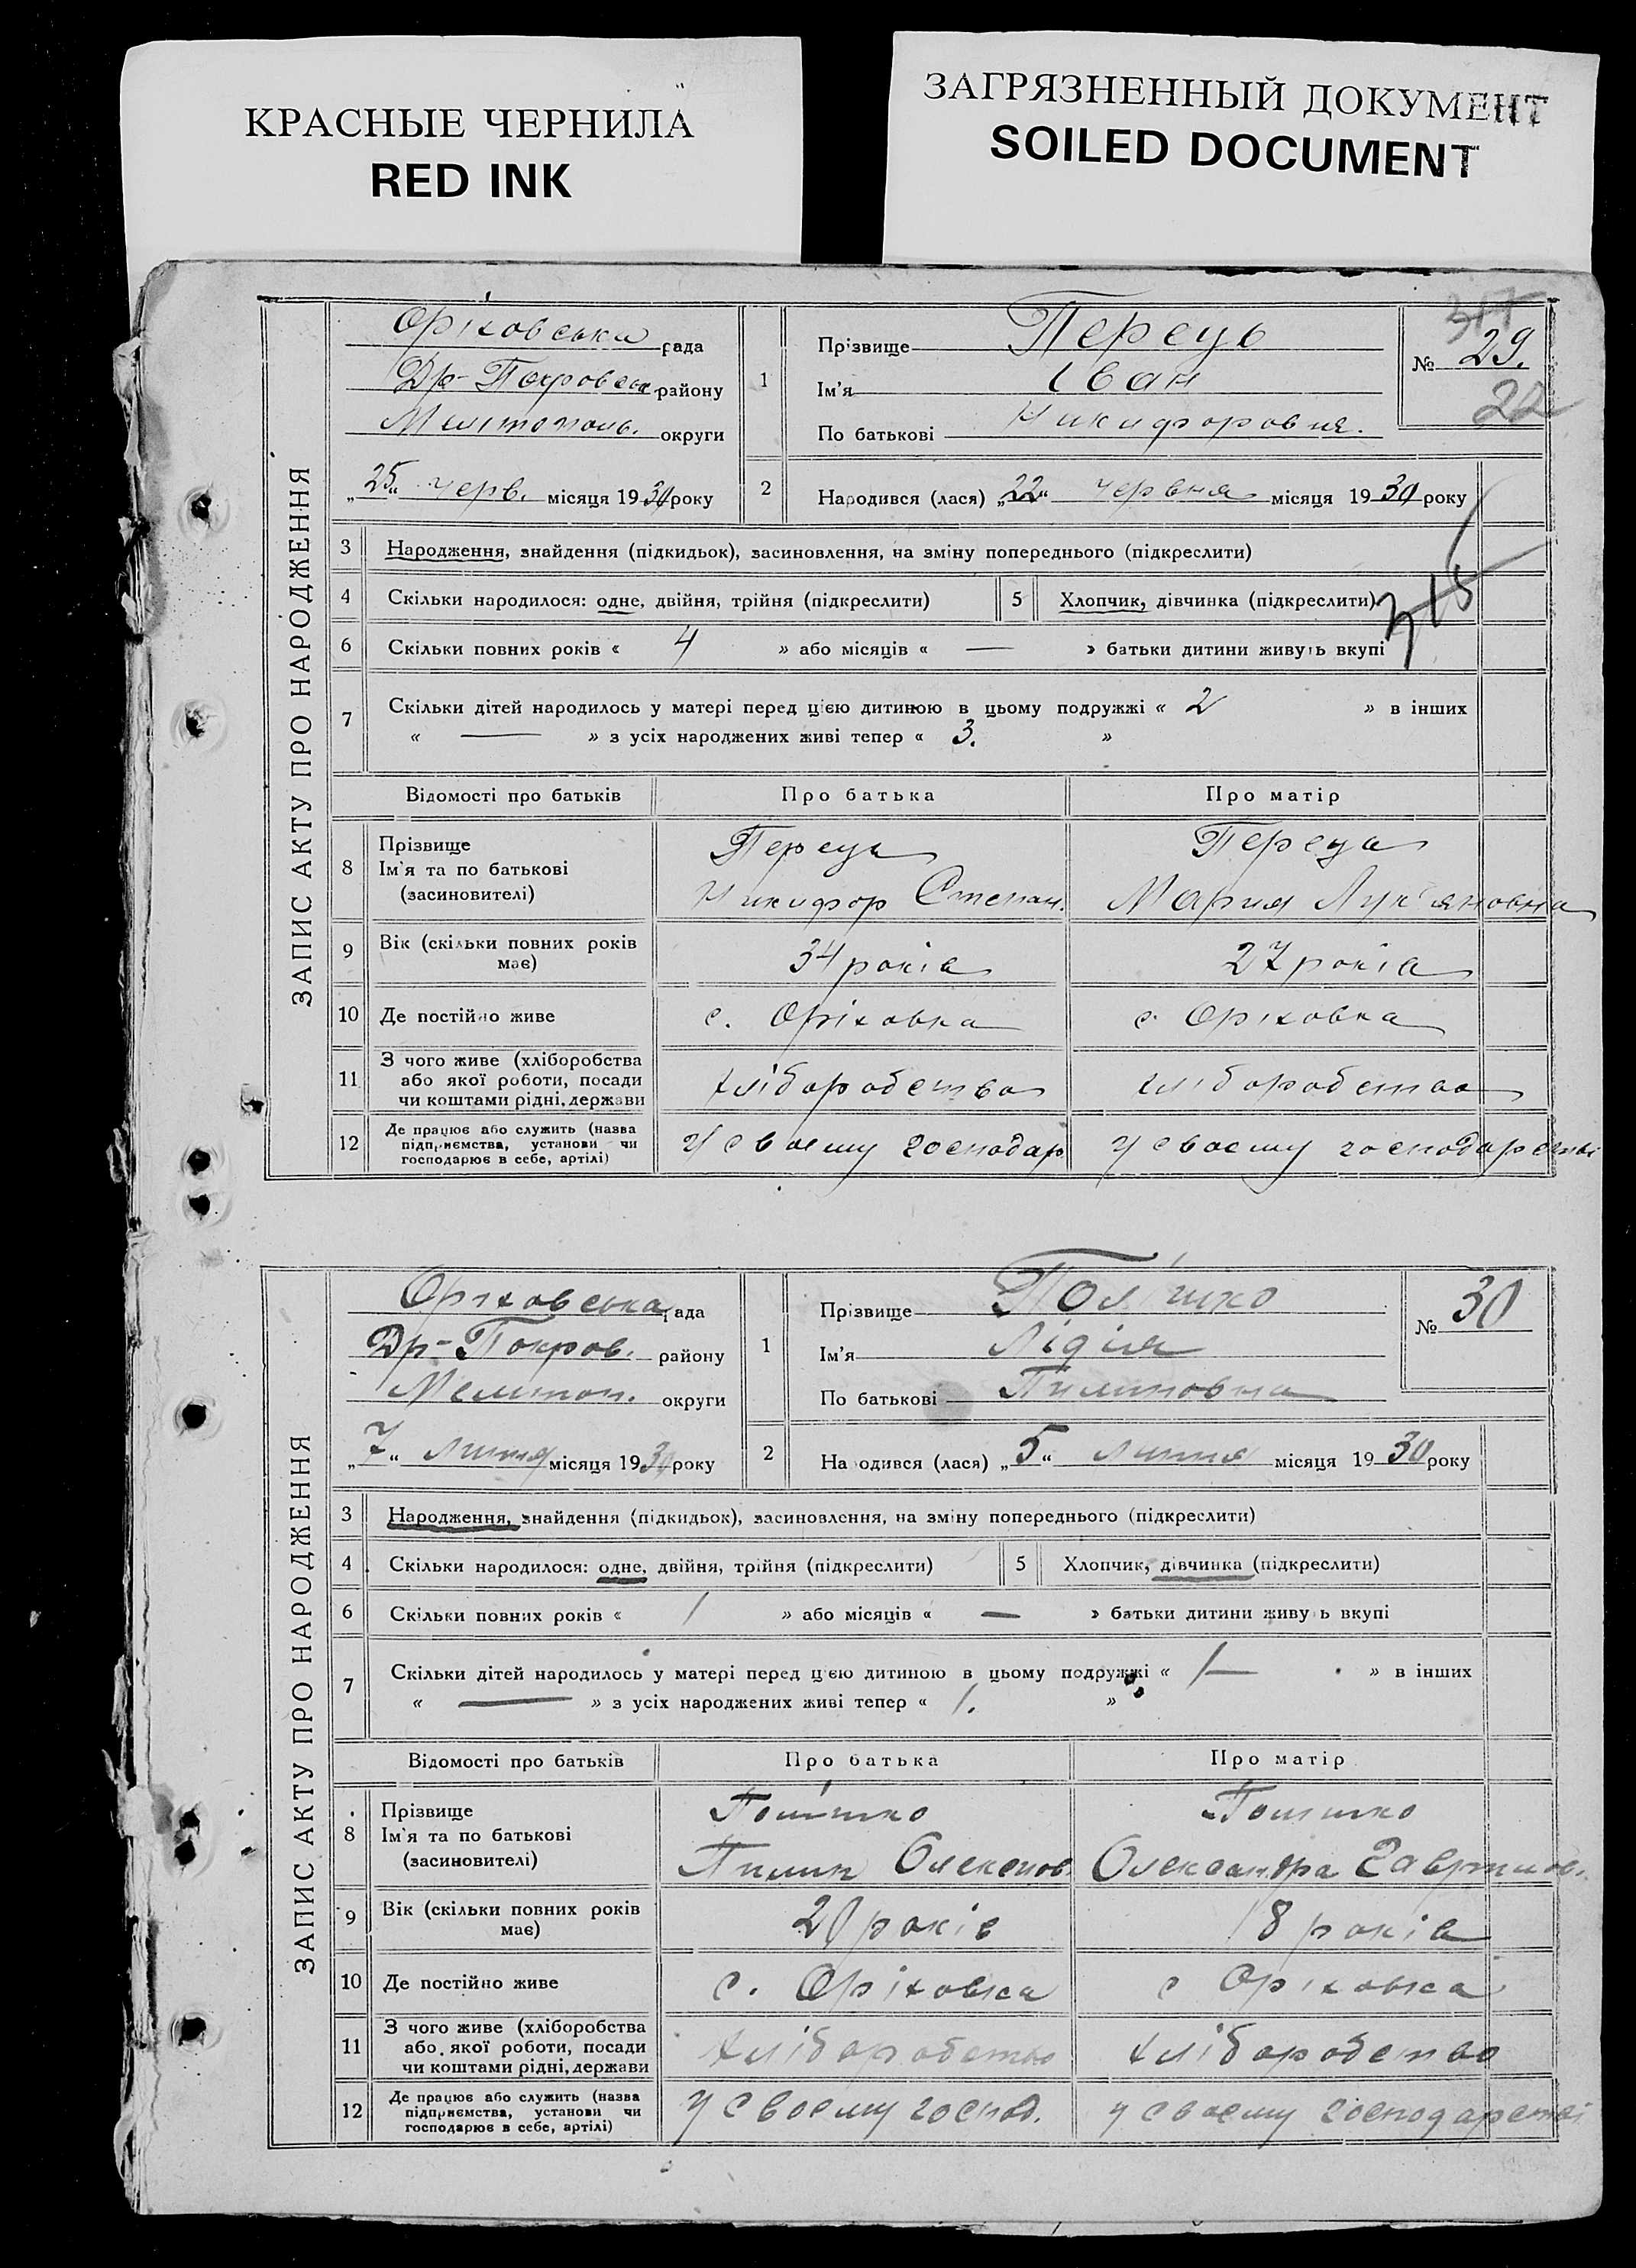 КРАСНЫЕ ЧЕРНИЛА
RED INK
ЗАГРЯЗНЕННЫЙ ДОКУМЕНТ
SOILED DOCUMENT
ЗАПИС АКТУ ПРО НАРОДЖЕННЯ
Оріховська рада
Др-Покровськ району
Мелітополь. округи
„25“ черв. місяця 1930 року
1 Прізвище Перець
Ім'я Іван
По батькові Никифорович.
№ 29.
22
2 Народився (лася) „22“ червня місяця 1930 року
3 Народження, знайдення (підкидьок), засиновлення, на зміну попереднього (підкреслити)
4 Скільки народилося: одне, двійня, трійня (підкреслити) 5 Хлопчик, дівчинка (підкреслити)
315
6 Скільки повних років « 4 » або місяців « — » батьки дитини живуть вкупі
7 Скільки дітей народилось у матері перед цією дитиною в цьому подружжі « 2 » в інших
« — » з усіх народжених живі тепер « 3. »
Відомості про батьків Про батька Про матір
8 Прізвище
Ім'я та по батькові
(засиновителі)
Переца
Никифор Степан.
Переца
Мария Лук'яновна
9 Вік (скільки повних років
має)
34 років
27 років
10 Де постійно живе с. Оріховка с. Оріховка
11 З чого живе (хліборобства
або якої роботи, посади
чи коштами рідні, держави
хліборобство
хліборобство
12 Де працює або служить (назва
підприємства, установи чи
господарює в себе, артілі)
У своєму господар
У своєму господарстві
ЗАПИС АКТУ ПРО НАРОДЖЕННЯ
Оріховська рада
Др-Покров. району
Мелитоп. округи
„7“ липня місяця 1930 року
1 Прізвище Полішко
Ім'я Лідія
По батькові Пилиповна
№ 30
2 Народився (лася) „5“ липня місяця 1930 року
3 Народження, знайдення (підкидьок), засиновлення, на зміну попереднього (підкреслити)
4 Скільки народилося: одне, двійня, трійня (підкреслити) 5 Хлопчик, дівчинка (підкреслити)
6 Скільки повних років « 1 » або місяців « — » батьки дитини живуть вкупі
7 Скільки дітей народилось у матері перед цією дитиною в цьому подружжі « 1— » в інших
« — » з усіх народжених живі тепер « 1. »
Відомості про батьків Про батька Про матір
8 Прізвище
Ім'я та по батькові
(засиновителі)
Полішко
Пилип Олексіов.
Полішко
Олександра Гаврилов.
9 Вік (скільки повних років
має)
20 років
18 років
10 Де постійно живе с. Оріховка с Оріховка
11 З чого живе (хліборобства
або якої роботи, посади
чи коштами рідні, держави
хліборобство
хліборобство
12 Де працює або служить (назва
підприємства, установи чи
господарює в себе, артілі)
У своєму господ.
у своєму господарстві